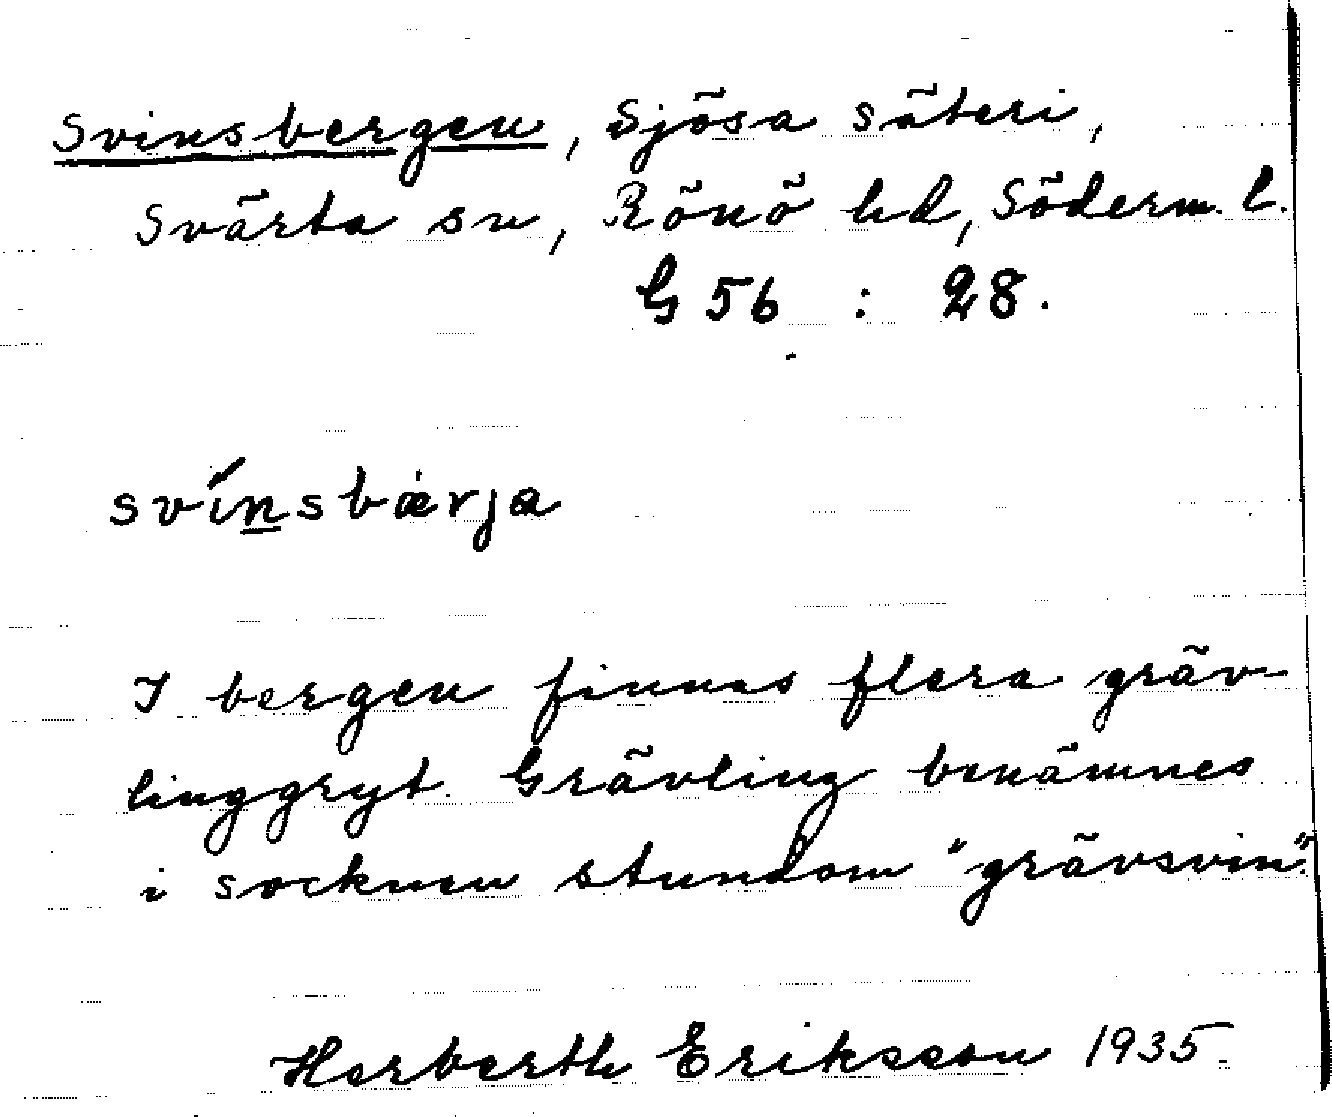 Svinsbergen, Sjösa säteri,
Svärta sn, Rönö hd, Söderm. l.
G 56 : 28.
svínsbærja
I bergen finnas flera gräv-
linggryt. Grävling benämnes
i socknen stundom "grävsvin".
Herberth Eriksson 1935.